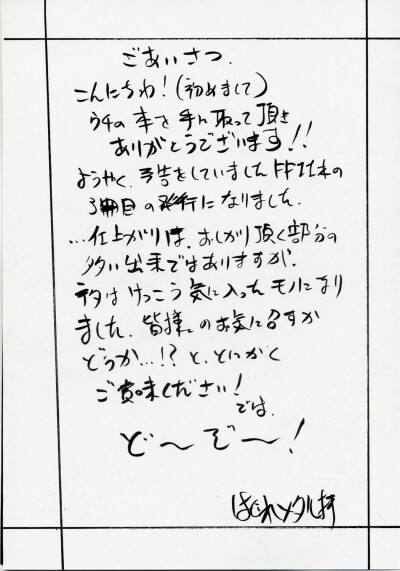 ごあいさつ.
こんにちわ!(初めまして)
ウチの本を手に取って頂き
ありがとうございます!!
ようやく、予告をしていましたFF社本の
3冊目の発行になりました.
…仕上がりは、おしかり頂く部分の
多い出来ではありますが.
ネタはけっこう気に入ったモノになり
ました. 皆様のお気に召すか
どうか…!? と、とにかく
ご賞味ください!
では.
ど〜ぞ〜!
はぐれメタル